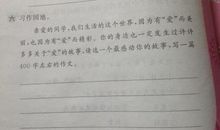 六 习作园地。
亲爱的同学,我们生活的这个世界,因为有“爱”而美
丽,也因为有“爱”而精彩。你的身边也一定发生过许许
多多关于“爱”的故事,请选一个最感动你的故事,写一篇
400字左右的作文。